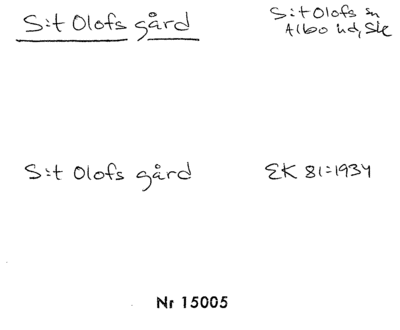 S:t Olofs gård
S:t Olofs sn
Albo hd, Sk
S:t Olofs gård
EK 81:1934
Nr 15005